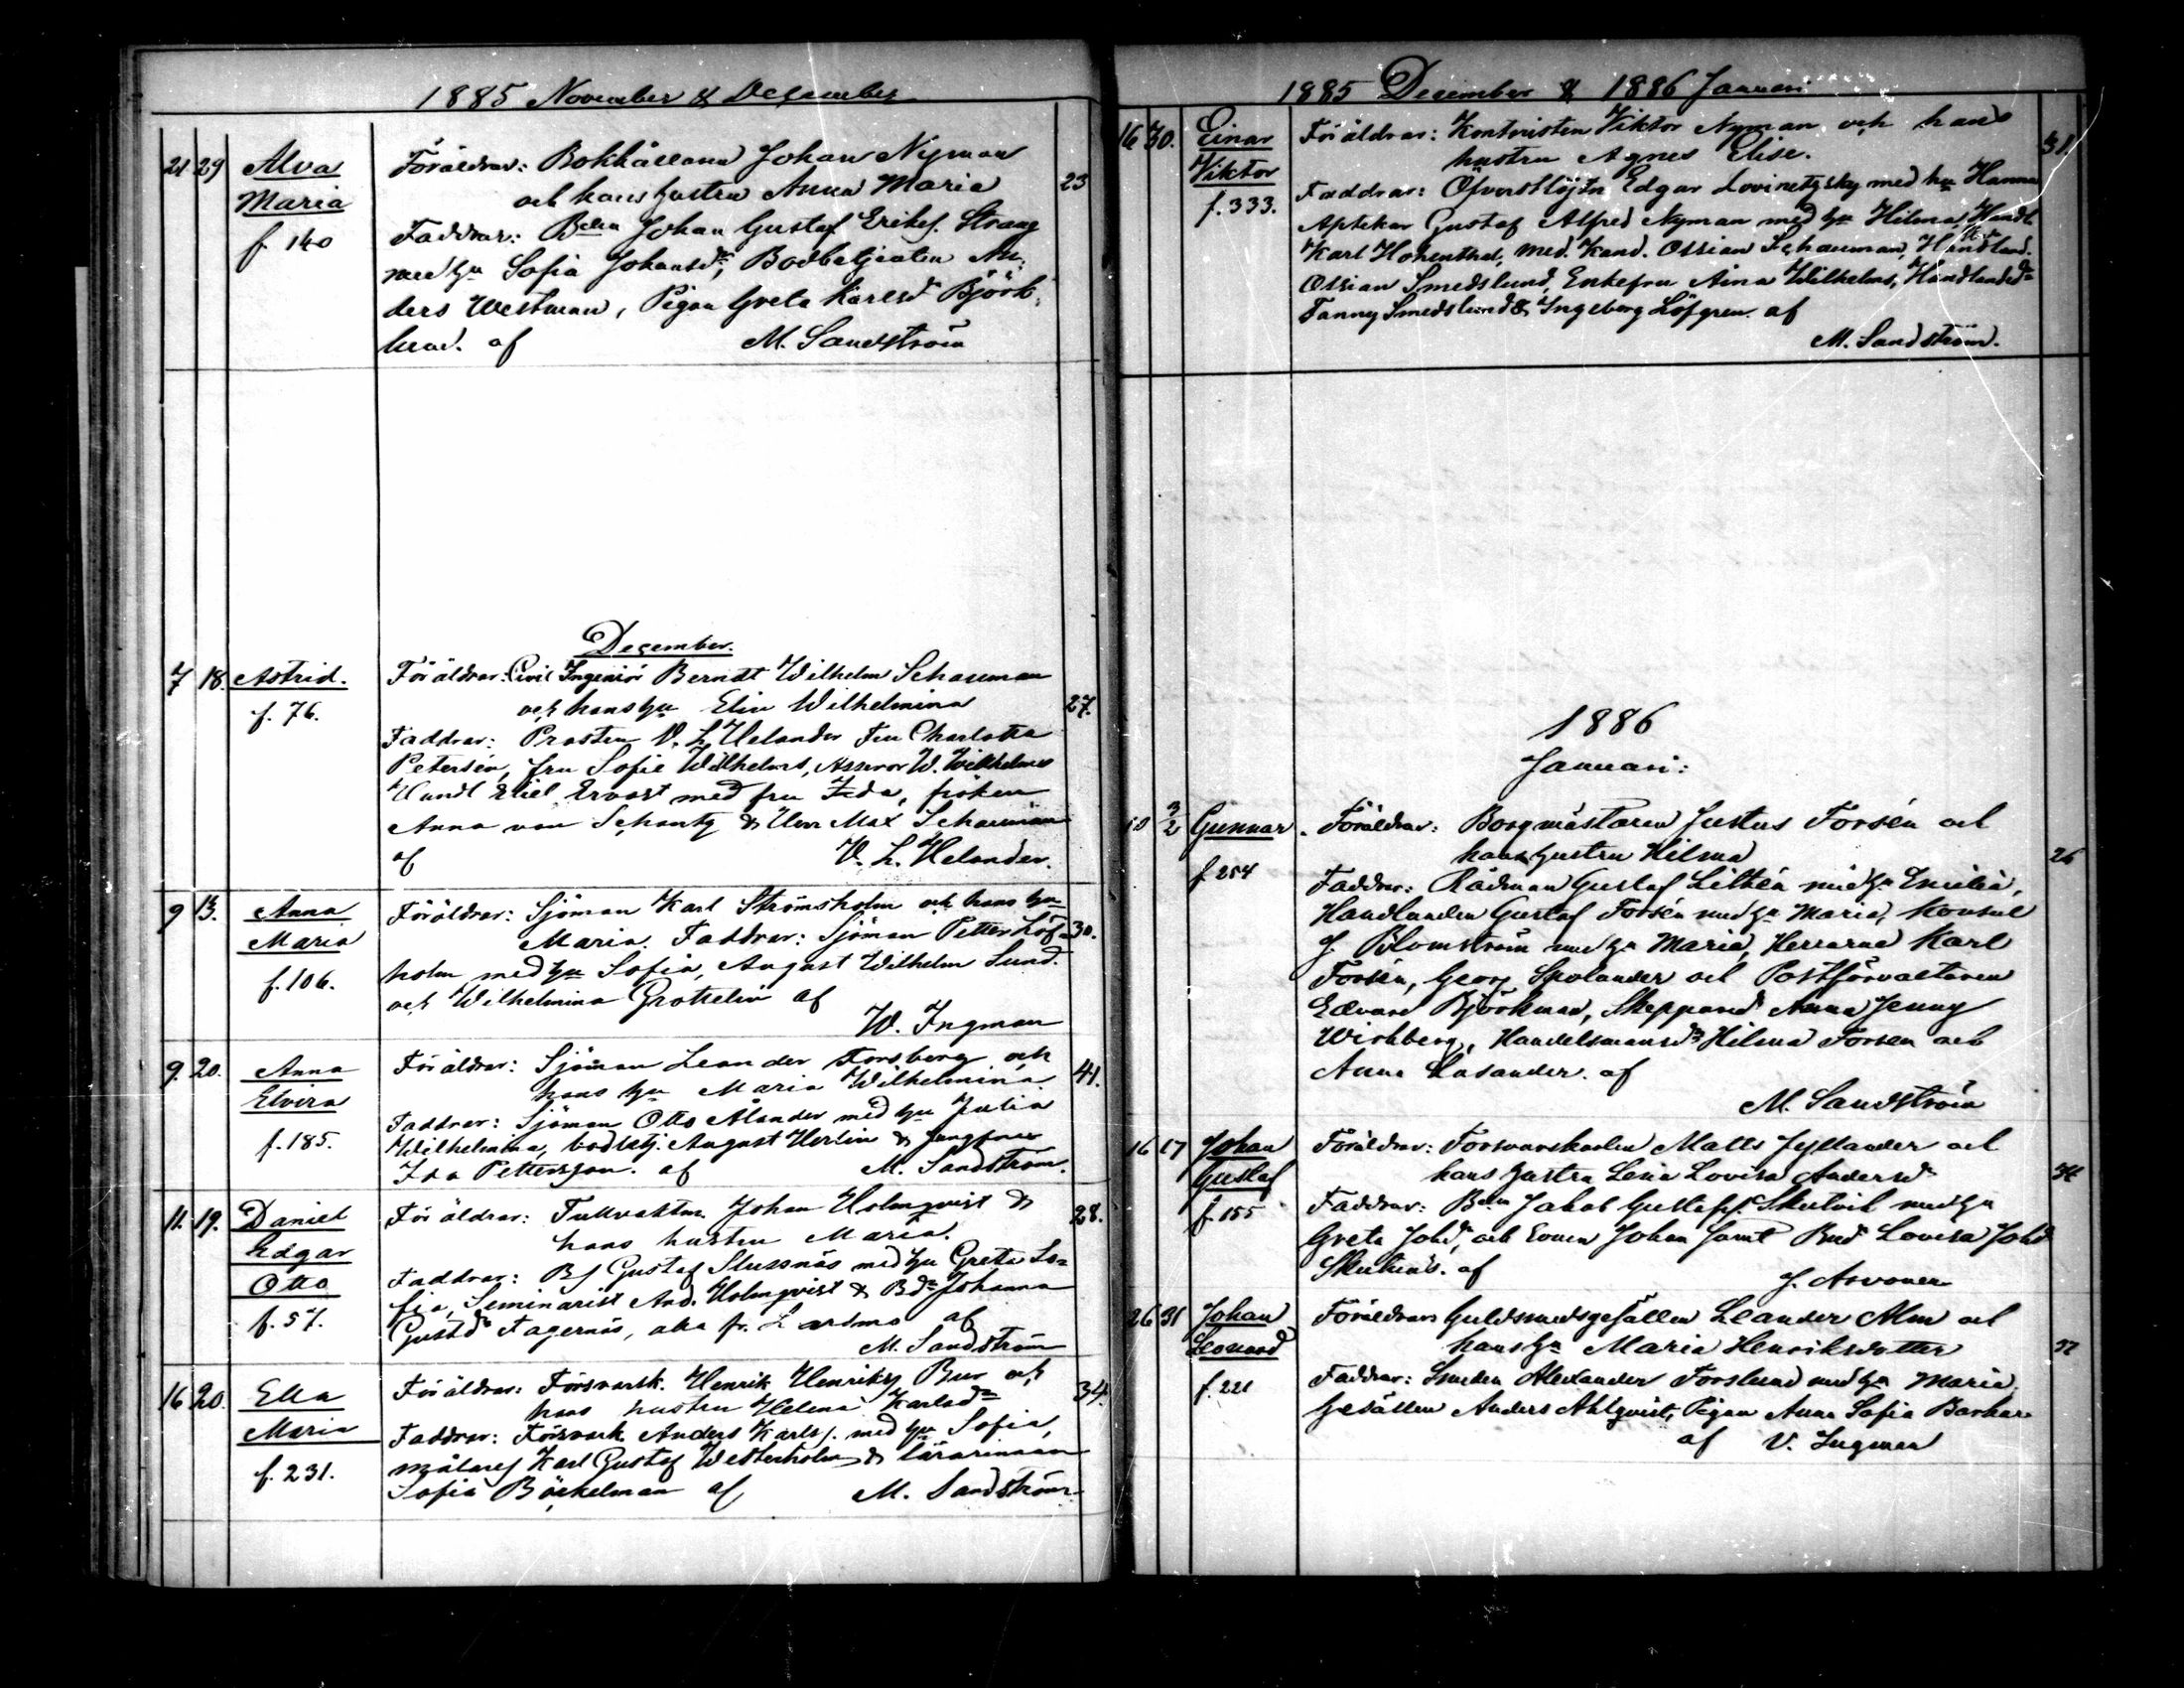 1885 November & December
21 29 Alva Föräldrar: Bokhållaren Johan Nyman 23
Maria och hans hustru Anna Maria
f. 140 Faddrar: Bden Johan Gustaf Eriks. Straag
med hu Sofia Johansdr, Bodbetjenten An-
ders Westman, Pigan Greta Karlsd Björk-
lund. af M. Sandström
December.
7 18. Astrid. Föräldrar: Civil Ingeniör Berndt Wilhelm Schauman
f. 76. och hans hu Elin Wilhelmina 27.
Faddrar: Prosten V. L. Helander Fru Charlotta
Petersén, fru Sofie Wilhelms, Assessor W. Wilhelms
Handl Eliel Ervast med fru Ida, fröken
Anna von Schantz & Herr Max Schauman
af V. L. Helander.
9 13. Anna Föräldrar: Sjöman Karl Strömsholm och hans hu
Maria Maria. Faddrar: Sjöman Petter Löf- 30.
f. 106. holm med hu Sofia, August Wilhelm Lund.
och Wilhelmina Grottelin af
W. Ingman
9. 20. Anna Föräldrar: Sjöman Leander Forsberg och 41.
Elvira hans hu Maria Wilhelmina.
f. 185. Faddrar: Sjöman Otto Ålander med hu Julia
Wilhelmina, bodbetj. August Herlin & Jungfrur
Ida Pettersson. af M. Sandström.
11. 19. Daniel Föräldrar: Tullvaktm. Johan Holmqvist & 28.
Edgar hans hustru Maria.
Otto Faddrar: Bs Gustaf Slussnäs med hu Greta So-
f. 57. fia, Seminarist And. Holmqvist & Bdr Johanna
Gustdr Fagernäs, alla fr. Larsmo af
M. Sandström
16 20. Ella Föräldrar: Försvarsk. Henrik Henriks Bur och 34.
Maria hans hustru Helena Karlsdr
f. 231. Faddrar: Försvark Anders Karlss. med hu Sofia,
målares Karl Gustaf Westerholm & lärarinnan
Sofia Böckelman af M. Sandström
1885 December & 1886 Januari
16 30. Einar Föräldrar: Kontoristen Viktor Nyman och hans 31.
Viktor hustru Agnes Elise.
f. 333. Faddrar: Öfverstlöjtn Edgar Lovinetzsky med hu Hanna
Aptekar Gustaf Alfred Nyman med hu Hilma, Handl.
Karl Hohenthal, Med. Kand. Ossian Schauman, Handland.
Ossian Smedslund, Enkefru Aina Wilhelms, Handlandedr
Fanny Smedslund & Ingeborg Löfgren. af
M. Sandström.
1886
Januari:
10 3/2 Gunnar. Föräldrar: Borgmästaren Justus Forsén och
f. 254 hans hustru Hilma 26
Faddrar: Rådman Gustaf Lithén med hu Emilia,
Handlanden Gustaf Forsén med hu Maria, Konsul
J. Blomström med hu Maria, Herrarne Karl
Forsén, Georg Skolander och Postförvaltaren
Edvard Björkman, Skeppared Anna Jenny
Wichberg, Handelsmansdr Hilma Forsen och
Anna Lasander. af
M. Sandström
16 17 Johan Föräldrar: Försvarskarlen Matts Jyllander och
Gustaf hans hustru Lena Lovisa Andersdr
f. 155 Faddrar: Bden Jakob Gustafss. Skutvik med hu
Greta Johd, och Johan Bnd Lovisa Johd
af J. Arvonen
26 31 Johan Föräldrar: Guldsmedsgesällen Leander Alm och
Leonard hans hu Maria Henriksdotter 37
f. 221 Faddrar: Smeden Alexander Forslund med hu Maria,
Gesällen Anders Ahlqvist, Pigan Anna Sofia Backar
af V. Ingman